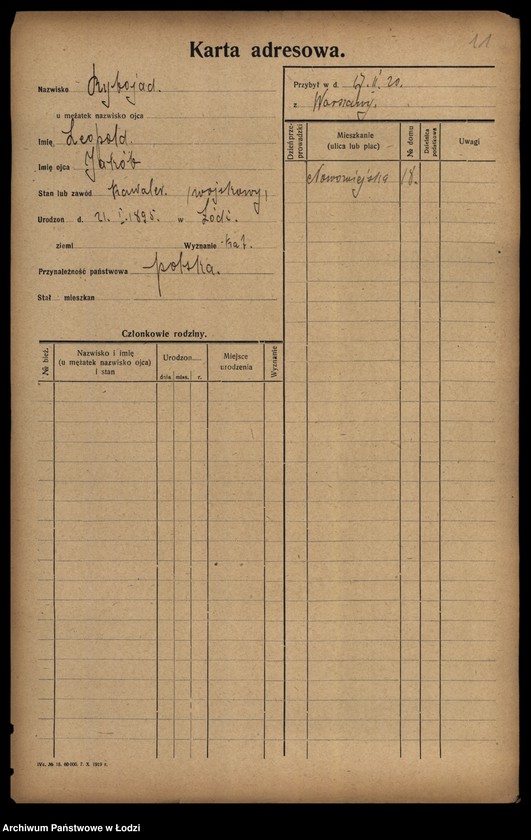 11
Karta adresowa.
Nazwisko Rybojad.
u mężatek nazwisko ojca
Imię Leopold.
Imię ojca Jakób
Stan lub zawód kawaler. (wojskowy)
Urodzon d. 21. I. 1895. w Łódź.
ziemi Wyznanie kat.
Przynależność państwowa polska.
Stał. mieszkan
Przybył w d. 17. II. 20.
z Warszawy.
Dzień przeprowadzki
Mieszkanie
(ulica lub plac)
№ domu
Dzielnica
podatkowa
Uwagi
Nowomiejska 18.
Członkowie rodziny.
№ bież.
Nazwisko i imię
(u mężatek nazwisko ojca)
i stan
Urodzon
dnia mies. r.
Miejsce
urodzenia
Wyznanie
№ 16. 60 000. 7. X. 1919 r.
Archiwum Państwowe w Łodzi